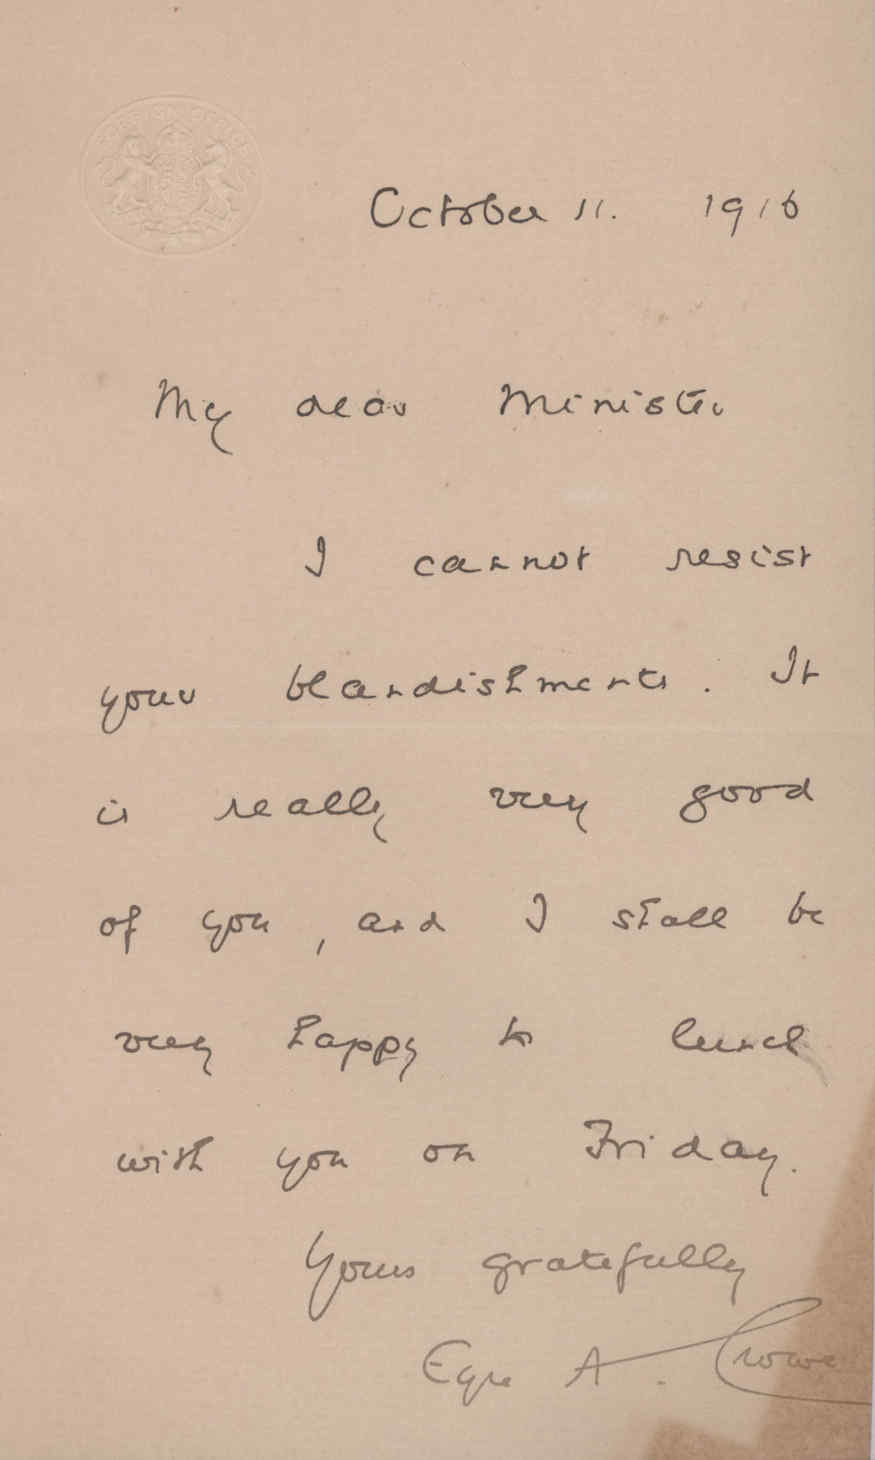 FOREIGN OFFICE
October 11. 1916
My dear Minister
I cannot resist
your blandishments. It
is really very good
of you, and I shall be
very happy to lunch
with you on Friday.
Yours gratefully
Eyre A. Crowe